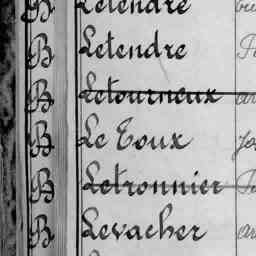 B Letendre
B Letendre
B Letourneux
B Le Toux
B Letronnier
B Levacher